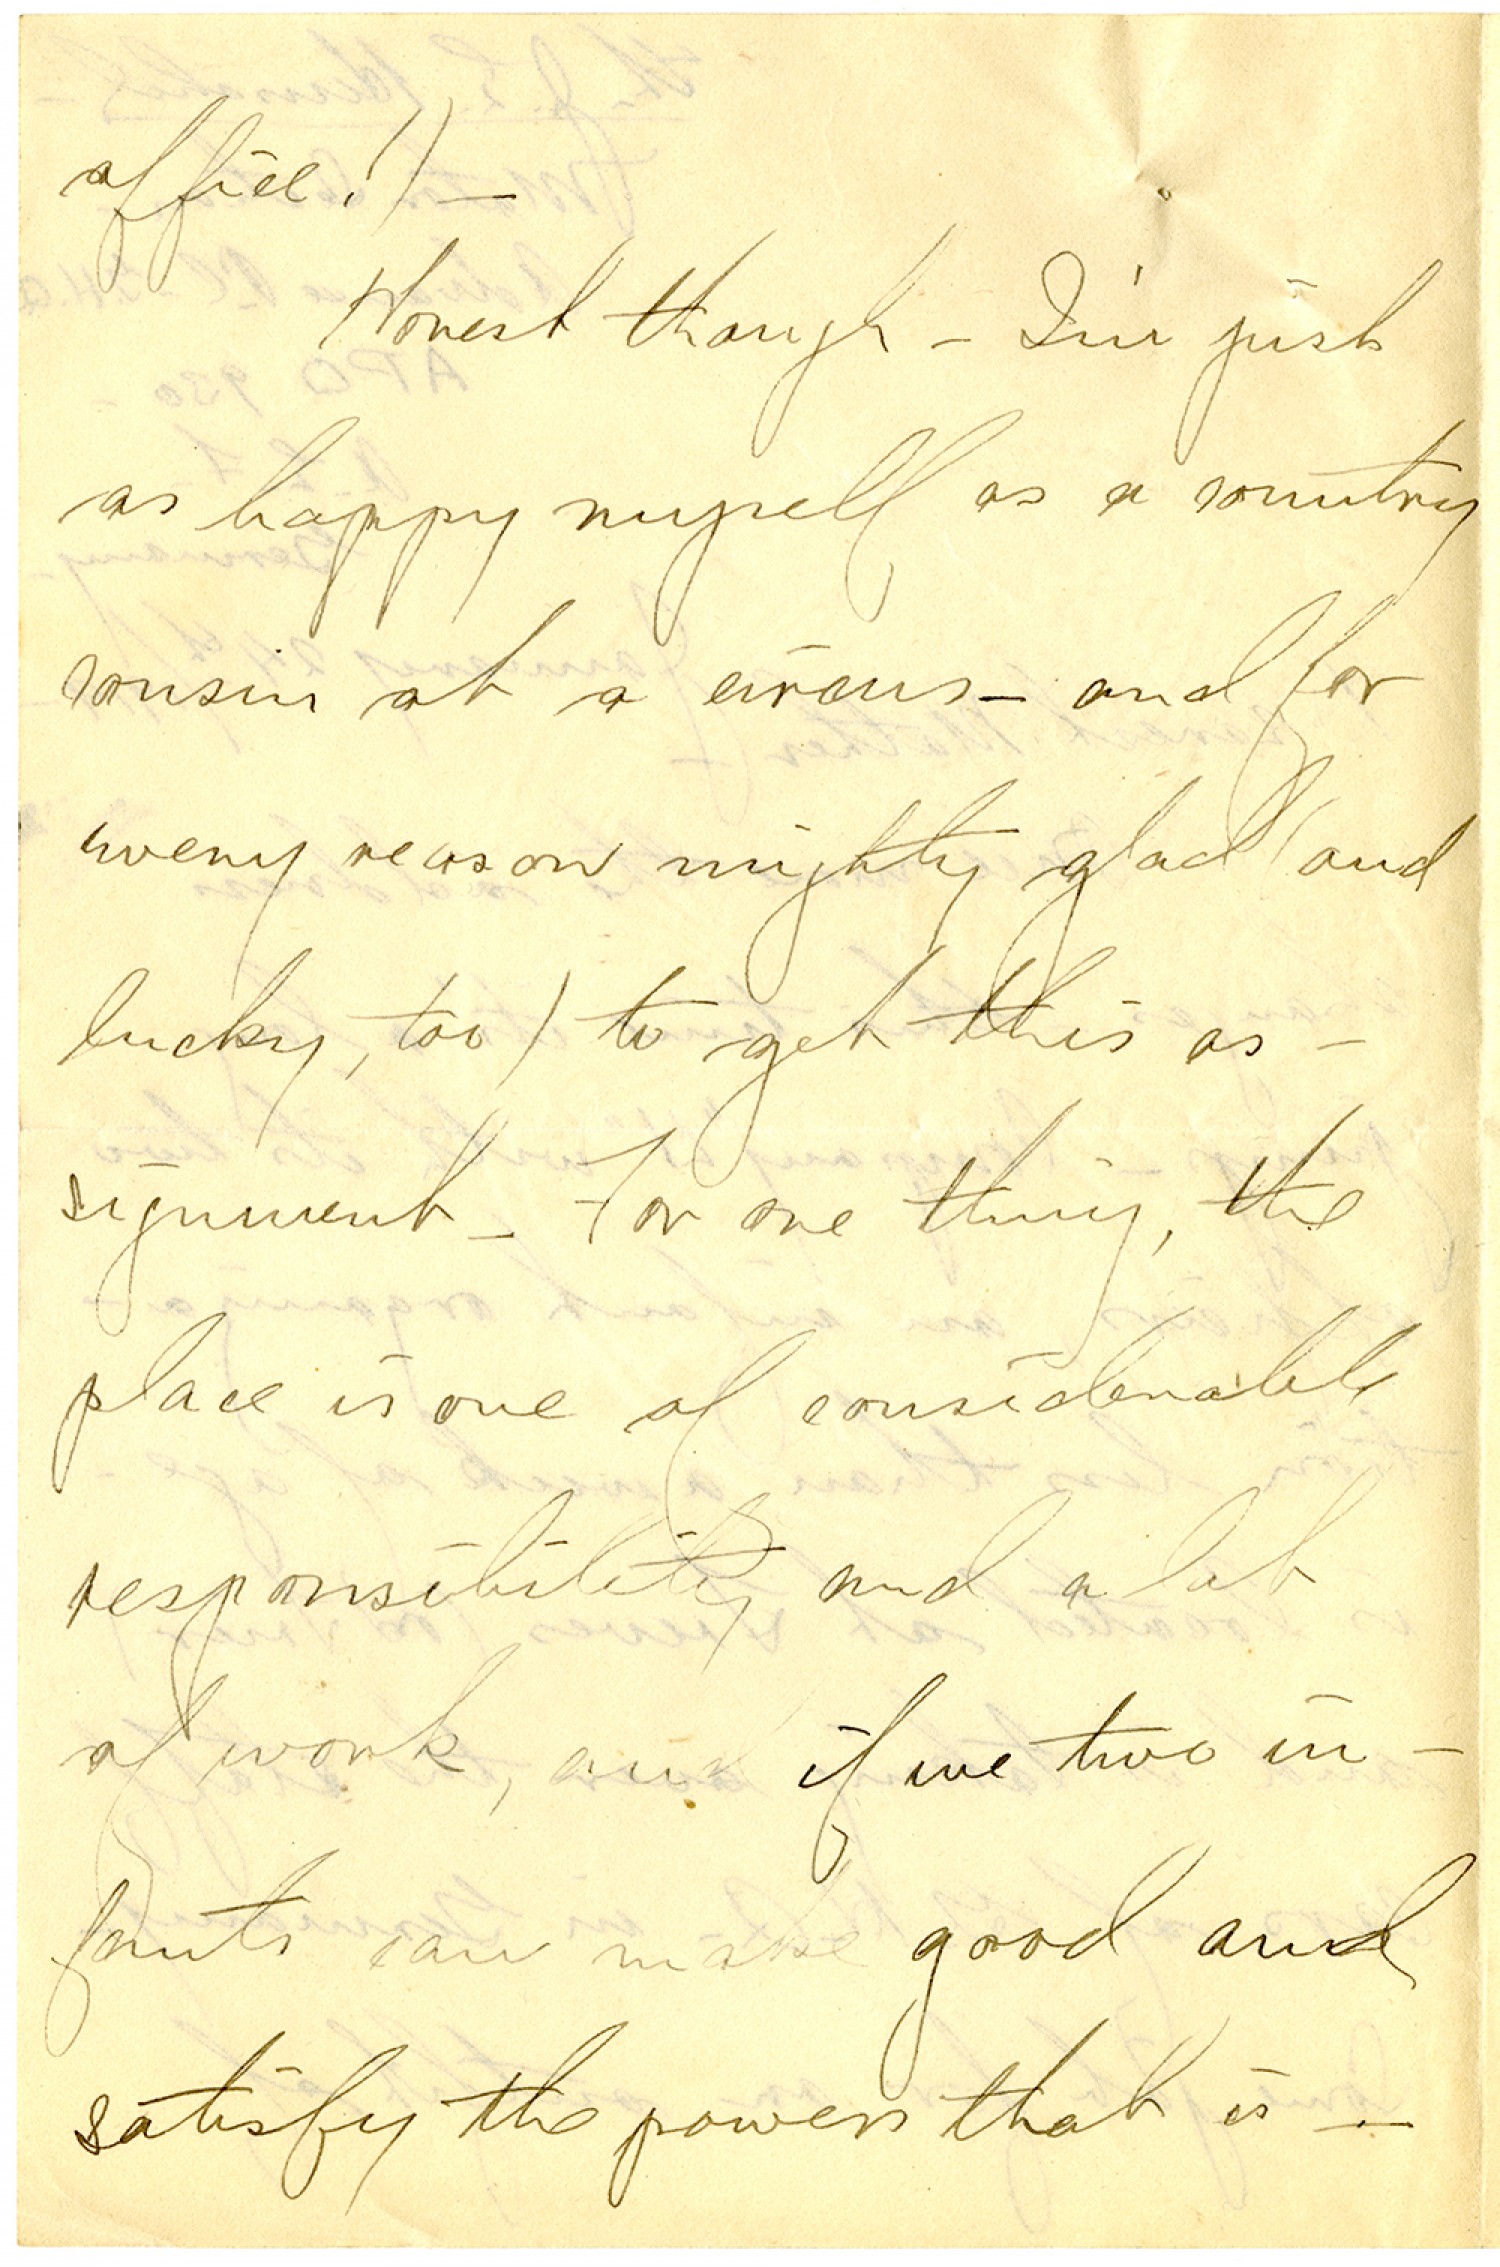 office!) —
Honest though — I'm just
as happy myself as a country
cousin at a circus — and for
every reason mighty glad (and
lucky, too) to get this as -
signment — For one thing, the
place is one of considerable
responsibility and a lot
of work, and if we two in -
fants can make good and
satisfy the powers that is —